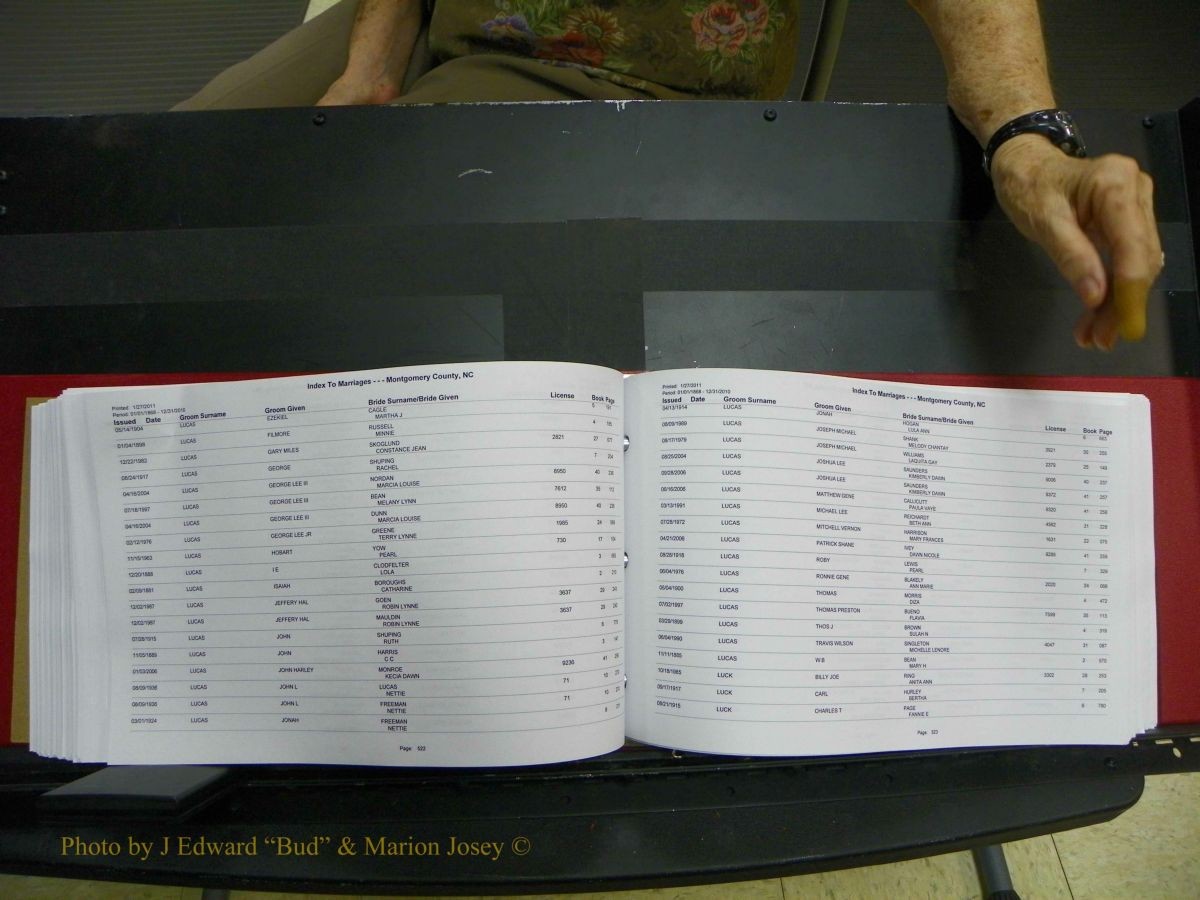 Index To Marriages - - - Montgomery County, NC
Printed: 1/27/2011
Period: 01/01/1868 - 12/31/2010
Issued Date Groom Surname Groom Given Bride Surname/Bride Given License Book Page
05/14/1904 LUCAS EZEKIEL CAGLE
MARTHA J
01/04/1898 LUCAS FILMORE RUSSELL
MINNIE
12/22/1983 LUCAS GARY MILES SKOGLUND 2821
CONSTANCE JEAN
08/24/1917 LUCAS GEORGE SHUPING
RACHEL
04/16/2004 LUCAS GEORGE LEE III NORDAN 8950
MARCIA LOUISE
07/18/1997 LUCAS GEORGE LEE III BEAN 7612
MELANY LYNN
04/16/2004 LUCAS GEORGE LEE III DUNN 8950
MARCIA LOUISE
02/12/1976 LUCAS GEORGE LEE JR GREENE 1985
TERRY LYNNE
11/15/1963 LUCAS HOBART YOW 730
PEARL
12/20/1888 LUCAS I E CLODFELTER
LOLA
02/08/1881 LUCAS ISAIAH BOROUGHS
CATHARINE
12/02/1987 LUCAS JEFFERY HAL GOEN 3637
ROBIN LYNNE
12/02/1987 LUCAS JEFFERY HAL MAULDIN 3637
ROBIN LYNNE
07/28/1915 LUCAS JOHN SHUPING
RUTH
11/05/1885 LUCAS JOHN HARRIS
C C
01/03/2006 LUCAS JOHN HARLEY MONROE 9236
KECIA DAWN
08/09/1936 LUCAS JOHN L LUCAS 71
NETTIE
08/09/1936 LUCAS JOHN L FREEMAN 71
NETTIE
03/01/1924 LUCAS JONAH FREEMAN
NETTIE
Page: 522
Index To Marriages - - - Montgomery County, NC
Printed: 1/27/2011
Period: 01/01/1868 - 12/31/2010
Issued Date Groom Surname Groom Given Bride Surname/Bride Given License Book Page
04/13/1914 LUCAS JONAH HOGAN
LULA ANN
08/09/1989 LUCAS JOSEPH MICHAEL SHANK 3921
MELODY CHANTAY
08/17/1979 LUCAS JOSEPH MICHAEL WILLIAMS 2379
LAQUITA GAY
08/25/2004 LUCAS JOSHUA LEE SAUNDERS
KIMBERLY DAWN
09/28/2006 LUCAS JOSHUA LEE SAUNDERS 9372
KIMBERLY DAWN
06/16/2006 LUCAS MATTHEW GENE CALLICUTT 9320
PAULA VAYE
03/13/1991 LUCAS MICHAEL LEE REICHARDT
BETH ANN
07/28/1972 LUCAS MITCHELL VERNON HARRISON 1631
MARY FRANCES
04/21/2006 LUCAS PATRICK SHANE IVEY
DAWN NICOLE
08/28/1918 LUCAS ROBY LEWIS
PEARL
06/04/1976 LUCAS RONNIE GENE BLAKELY 2020
ANN MARIE
06/04/1900 LUCAS THOMAS MORRIS
DIZA
07/02/1997 LUCAS THOMAS PRESTON BUENO 7599
FLAVIA
03/29/1899 LUCAS THOS J BROWN
SULAH N
06/04/1990 LUCAS TRAVIS WILSON SINGLETON 4047
MICHELLE LENORE
11/11/1885 LUCAS W B BEAN
MARY H
10/18/1985 LUCK BILLY JOE RING 3302
ANITA ANN
09/17/1917 LUCK CARL HURLEY
BERTHA
09/21/1915 LUCK CHARLES T PAGE
FANNIE E
Page: 523
Photo by J Edward “Bud” & Marion Josey ©